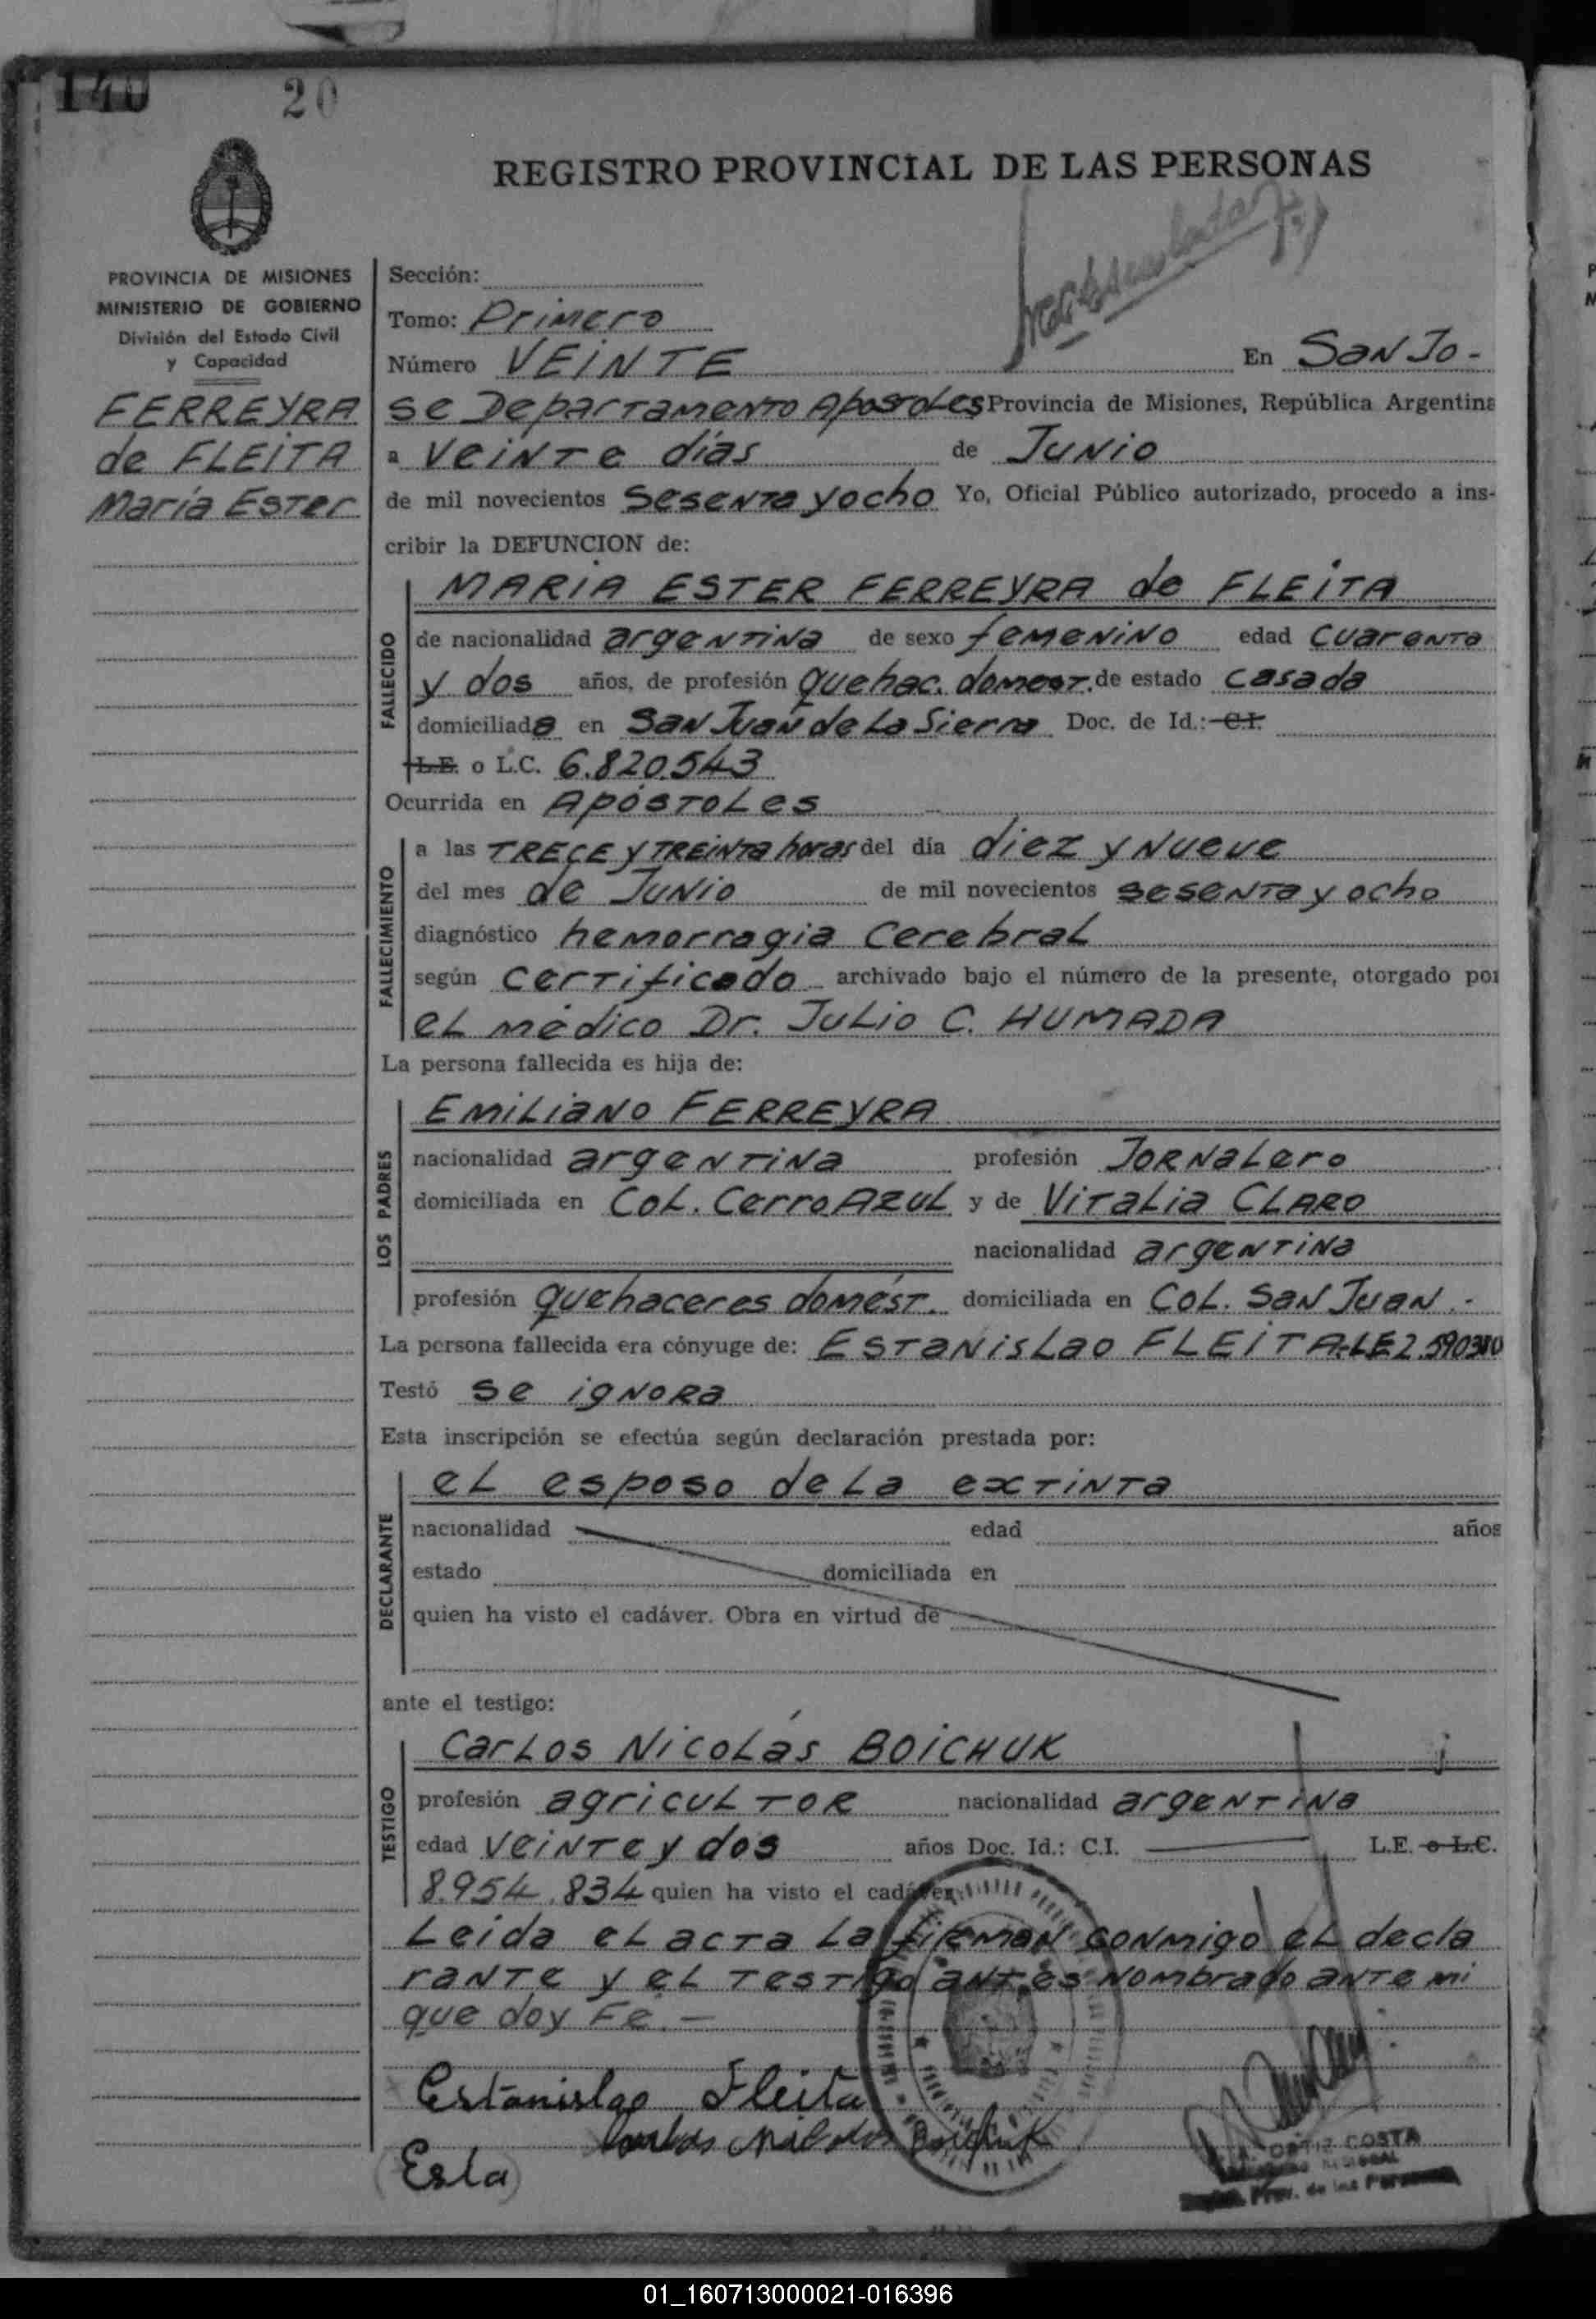 140 20
REGISTRO PROVINCIAL DE LAS PERSONAS
PROVINCIA DE MISIONES
MINISTERIO DE GOBIERNO
División del Estado Civil
y Capacidad
FERREYRA
de FLEITA
María Ester
Sección:
Tomo: Primero
Número VEINTE En San Jo-
se Departamento Apostoles Provincia de Misiones, República Argentina
a veinte días de Junio
de mil novecientos sesenta y ocho Yo, Oficial Público autorizado, procedo a ins-
cribir la DEFUNCION de:
FALLECIDO
MARIA ESTER FERREYRA de FLEITA
de nacionalidad argentina de sexo femenino edad cuarenta
y dos años, de profesión quehac. domest. de estado casada
domiciliada en San Juan de La Sierra Doc. de Id.: C.I.
L.E. o L.C. 6.820.543
Ocurrida en Apóstoles
FALLECIMIENTO
a las TRECE y TREINTA horas del día diez y nueve
del mes de Junio de mil novecientos sesenta y ocho
diagnóstico hemorragia cerebral
según certificado archivado bajo el número de la presente, otorgado por
el médico Dr. Julio C. HUMADA
La persona fallecida es hija de:
LOS PADRES
Emiliano FERREYRA
nacionalidad argentina profesión Jornalero
domiciliada en Col. Cerro Azul y de Vitalia CLARO
nacionalidad argentina
profesión quehaceres domést. domiciliada en Col. San Juan.-
La persona fallecida era cónyuge de: Estanislao FLEITA-LE 2.590380
Testó se ignora
Esta inscripción se efectúa según declaración prestada por:
DECLARANTE
el esposo de la extinta
nacionalidad edad años
estado domiciliada en
quien ha visto el cadáver. Obra en virtud de
ante el testigo:
TESTIGO
Carlos Nicolás BOICHUK
profesión agricultor nacionalidad argentina
edad veinte y dos años Doc. Id.: C.I. L.E. o L.C.
8.954.834 quien ha visto el cadáver.
Leida el acta la firman conmigo el decla
rante y el testigo antes nombrado ante mi
que doy Fé.-
Estanislao Fleita
Carlos Nicolas Boichuk
Esta
ORTIZ COSTA
Prov. de las Personas
01_160713000021-016396